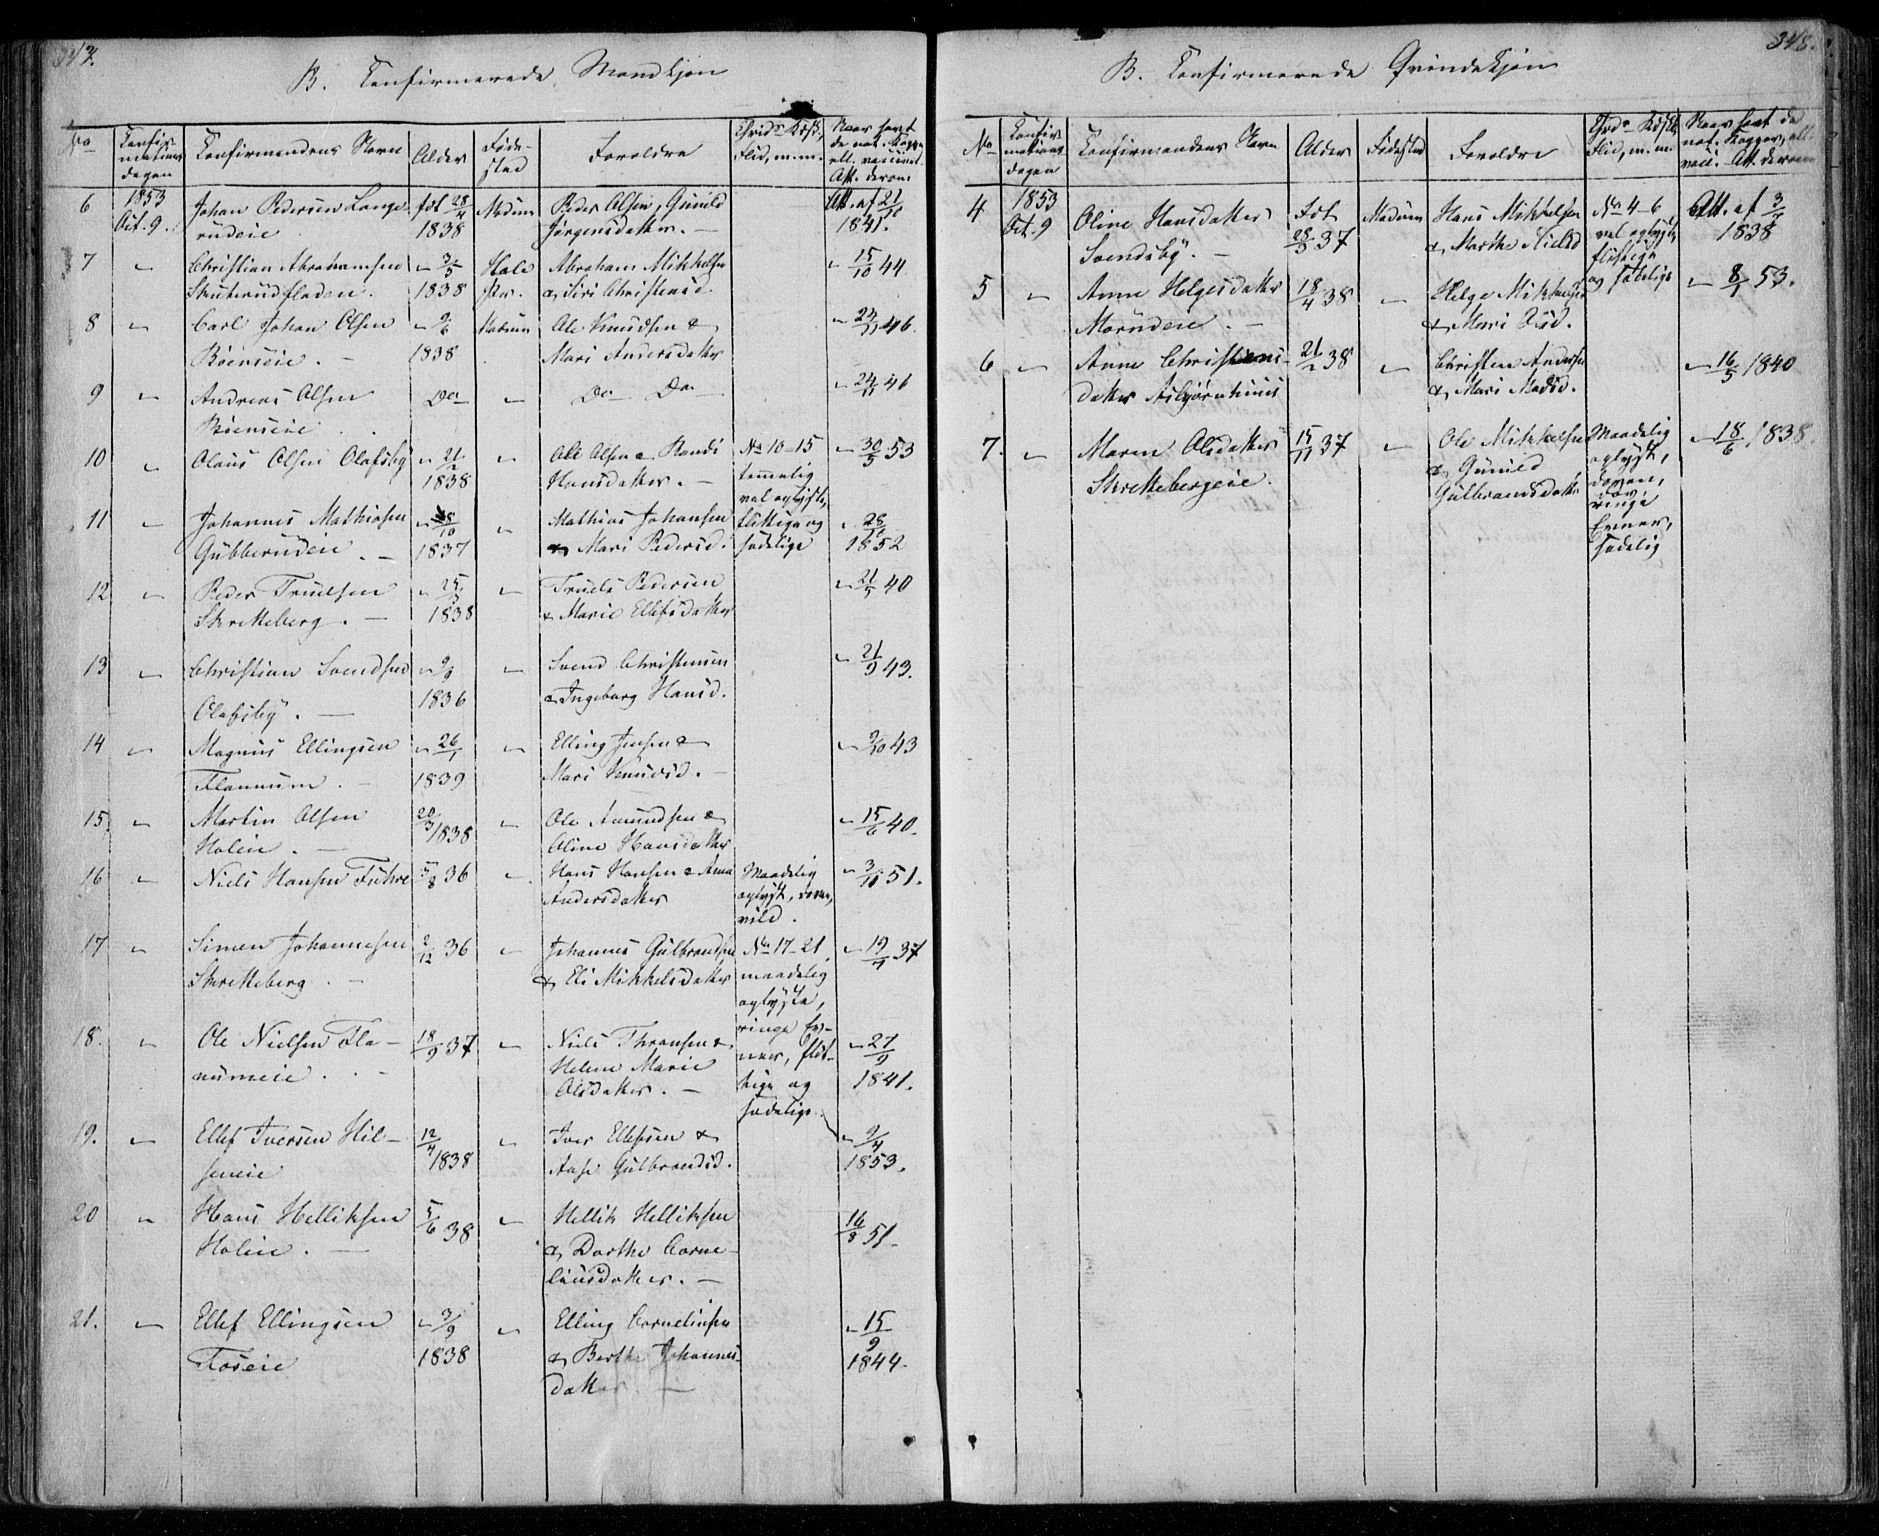 347.
B. Confirmerede Mandkjøn
No
Confir-
mations
dagen
Confirmandens Navn
Alder
Føde-
sted
Forældre
Flid, m. m.
Att. derom
6
1853
Oct. 9.
Johan Pedersen Lange-
rudeie
fød 28/4
1838
Modum
Peder Olsen, Gunild
Jørgensdatter. —
Att. af 21/10
1841.
7
"
Christian Abrahamsen
Skuterudfladen.
" 3/5
1838
Abraham Mikkelsen
& Siri Christensd.
" 15/10 44
8
"
Carl Johan Olsen
Böenseie. —
" 9/6
1838
Modum
Ole Knudsen &
Mari Andersdatter
" 24/11 46.
9
"
Andreas Olsen
Böenseie
Do
"
Do — Do —
" 24/11 46
10
"
Olaus Olsen Olafsby
" 21/2
1838
"
Ole Olsen & Randi
Hansdatter. —
No 10-15
temmelig
vel oplyste,
flittige og
sædelige
" 30/5 53
11
"
Johannes Mathiasen
Gubberudeie. —
" 28/10
1837
"
Mathias Johansen
& Mari Pedersd.
" 28/
1852
12
"
Peder Truelsen
Skretteberg. —
" 25/
1838
"
Truels Pedersen
& Marie Ellefsdatter
" 21/5 40
13
"
Christian Svendsen
Olafsby. —
"
1836
"
Svend Christensen
& Ingeborg Hansd.
" 21/9 43.
14
"
Magnus Ellingsen
Flannum. —
" 26/1
1839
"
Elling Jensen &
Mari Knudsd. —
" 9/10 43
15.
"
Martin Olsen
Holeie. —
20/3 1838
"
Ole Amundsen &
Oline Hansdatter
" 15/6 40.
16
"
Niels Hansen Fuhre
5/8 36
"
Hans Hansen & Anne
Andersdatter
Maadelig
oplyst, doven,
vild.
" 3/11 51.
17
"
Simen Johannesen
Skretteberg. —
2/12 36
"
Johannes Gulbrandsen
& Eli Mikkelsdatter
No 17-21.
maadelig
oplyste,
ringe Ev-
ner, flit-
tige og
sædelige.
" 19/ 37
18.
"
Ole Nielsen Fla-
numeie. —
18/9 37
"
Niels Thransen &
Helene Marie
Olsdatter. —
" 27/9
1841.
19.
"
Ellef Iversen Hil-
seneie
12/4 1838
"
Iver Ellefsen &
Aase Gulbrandsd.
" 9/4
1853.
20
"
Hans Helliksen
Holeie. —
5/6 38
"
Hellik Helliksen
& Dorthe Corne-
liusdatter. —
16/3 51.
21.
"
Ellef Ellingsen
Foseie
" 3/9
1838
"
Elling Corneliusen
& Berthe Johannes-
datter. —
" 15/9
1844.
348.
B. Confirmerede Qvindekjøn
No
Confir-
mations
dagen
Confirmandens Navn
Alder
Fødested
Forældre
Flid, m. m.
Att. derom
4
1853
Oct. 9
Oline Hansdatter
Svendsby. —
Født
28/3 37
Modum
Hans Mikkelsen
& Marthe Nielsd
No 4-6
vel oplyste,
flittige
og sædelige
Att. af 3/
1838
5
"
Anne Helgesdatter
Morudeie. —
18/4 38
"
Helge Mikkelsen
& Mari
" 8/ 53.
6
"
Anne Christens-
datter Asbjørnhuus
21/2 38
"
Christen Andersen
& Mari Madsd.
" 16/5 1840
7.
"
Maren Olsdatter
Skrettebergeie.
15/11 37
"
Ole Mikkelsen
& Gunild
Gulbrandsdatter
Maadelig
oplyst,
doven,
ringe
Evner,
sædelig
" 18/6 1838.